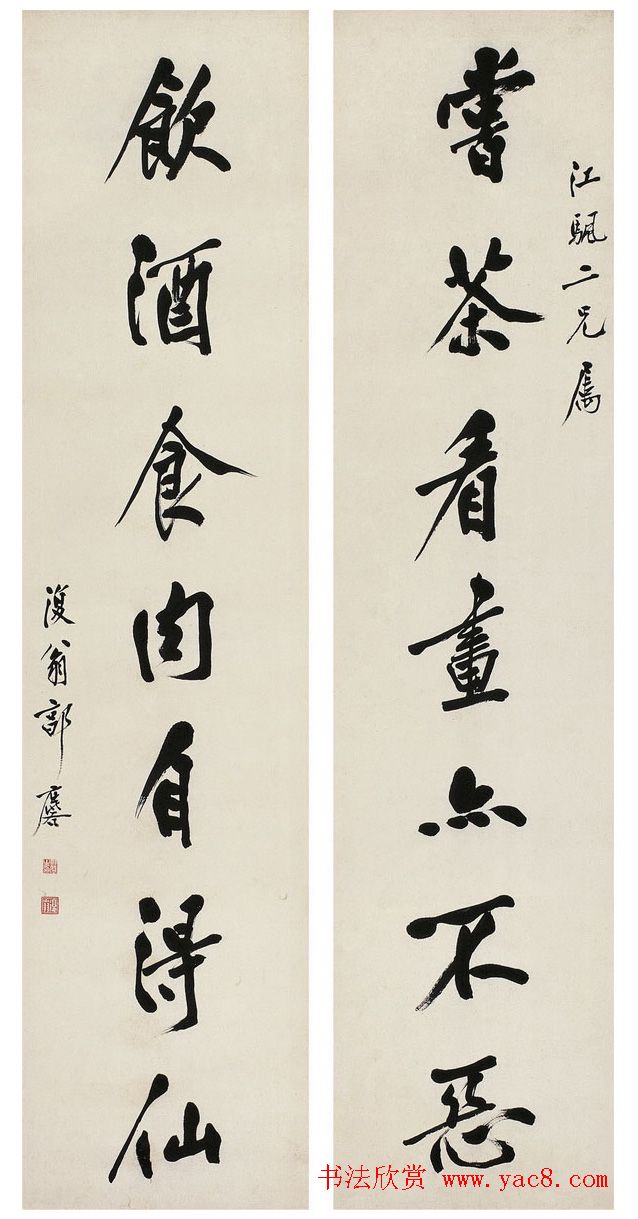 江颿二兄屬
嘗茶看畫亦不惡
飲酒食肉自得仙
復翁郭麐
书法欣赏 www.yac8.com